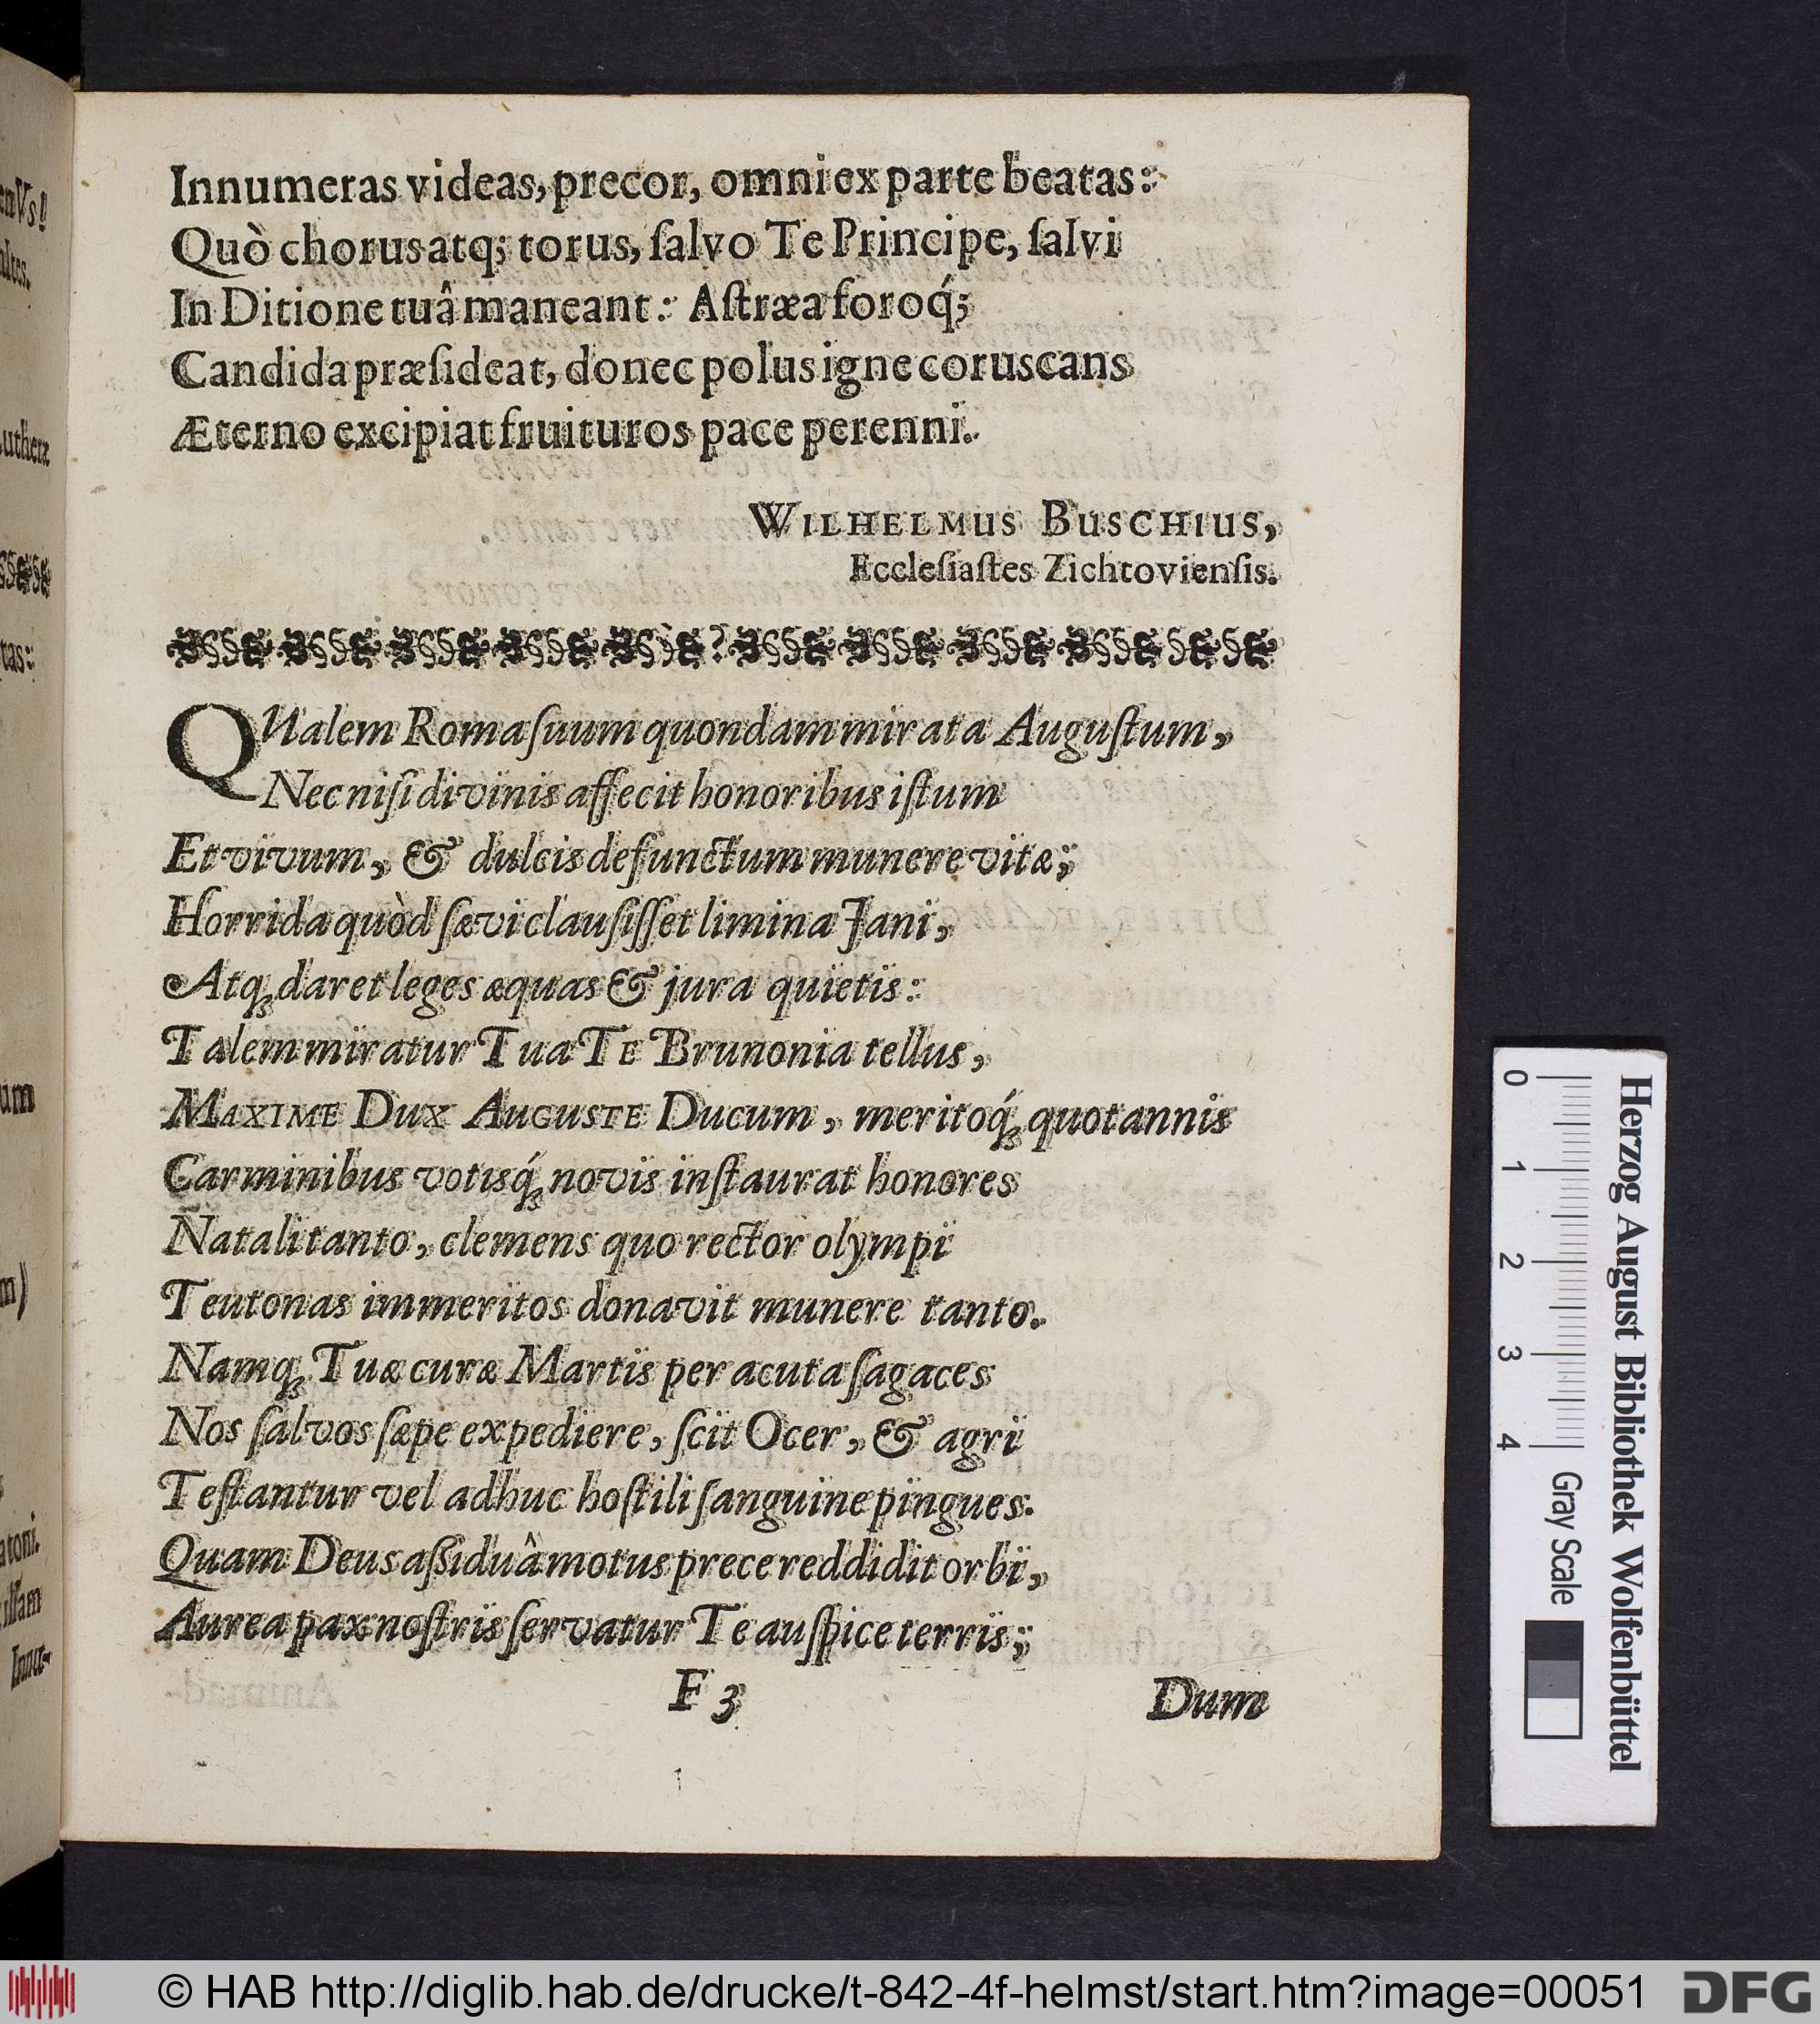 Innumeras videas, precor, omni ex parte beatas:
Quò chorus atq; torus, ſalvo Te Principe, ſalvi
In Ditione tuâ maneant: Aſtræa foroq́;
Candida præſideat, donec polus igne coruscans
Æterno excipiat fruituros pace perenni.
WILHELMUS BUSCHIUS,
Eccleſiaſtes Zichtovienſis.
QUalem Roma ſuum quondam mirata Auguſtum,
Nec niſi divinis affecit honoribus iſtum
Et vivum, & dulcis defunctum munere vitæ;
Horrida quòd ſævi clauſiſſet limina Jani,
Atq; daret leges æquas & jura quietis:
Talem miratur Tua TE Brunonia tellus,
MAXIME DUX AUGUSTE DUCUM, meritoq́; quotannis
Carminibus votisq́; novis inſtaurat honores
Natali tanto, clemens quo rector olympi
Teutonas immeritos donavit munere tanto.
Namq; Tuæ curæ Martis per acuta ſagaces
Nos ſalvos ſæpe expediere, ſcit Ocer, & agri
Teſtantur vel adhuc hoſtili ſanguine pingues.
Quam Deus aſſiduâ motus prece reddidit orbi,
Aurea pax noſtris ſervatur Te auſpice terris;
F 3
Dum
Herzog August Bibliothek Wolfenbüttel
0 1 2 3 4 Gray Scale
© HAB http://diglib.hab.de/drucke/t-842-4f-helmst/start.htm?image=00051
DFG